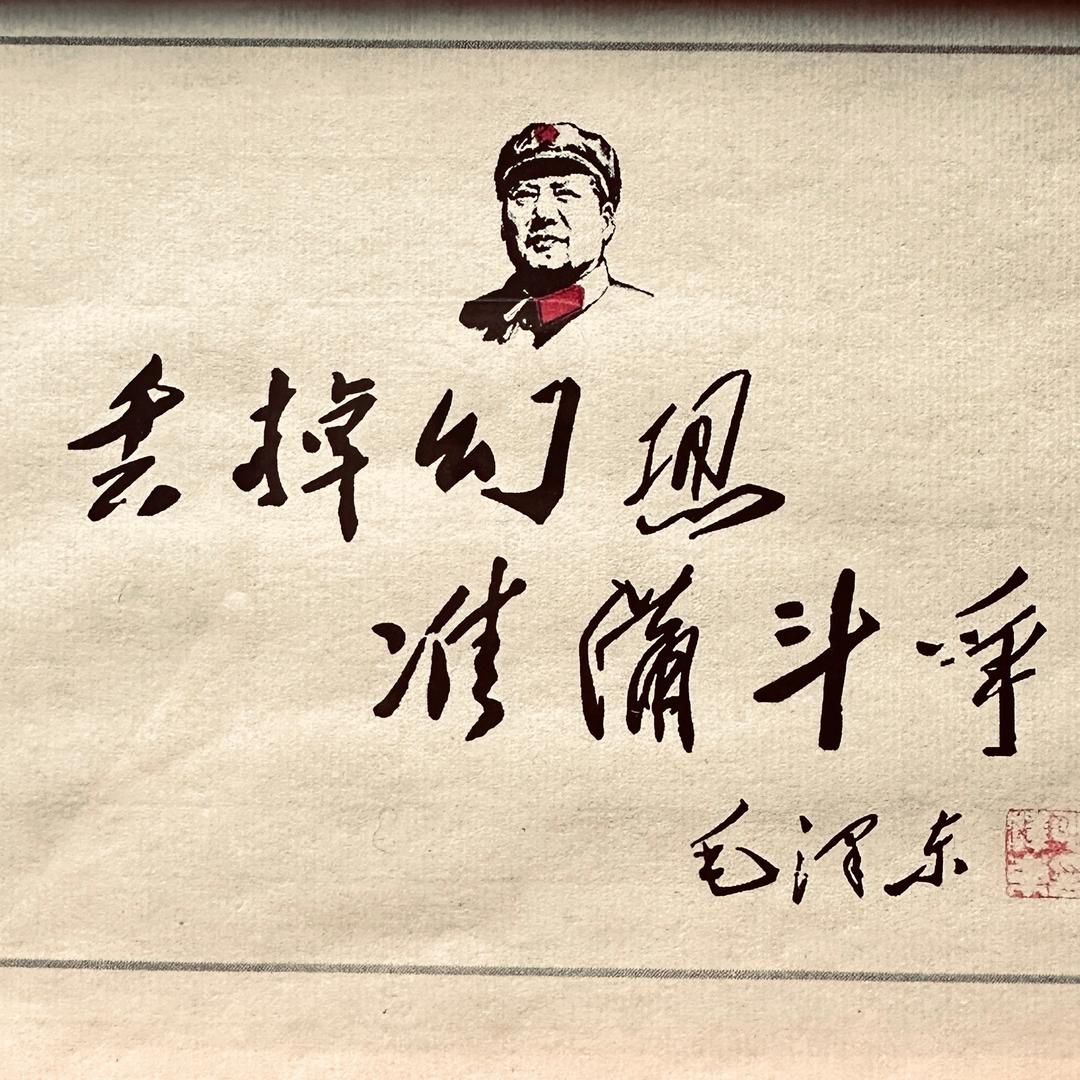 丢掉幻想
准備斗争
毛泽东